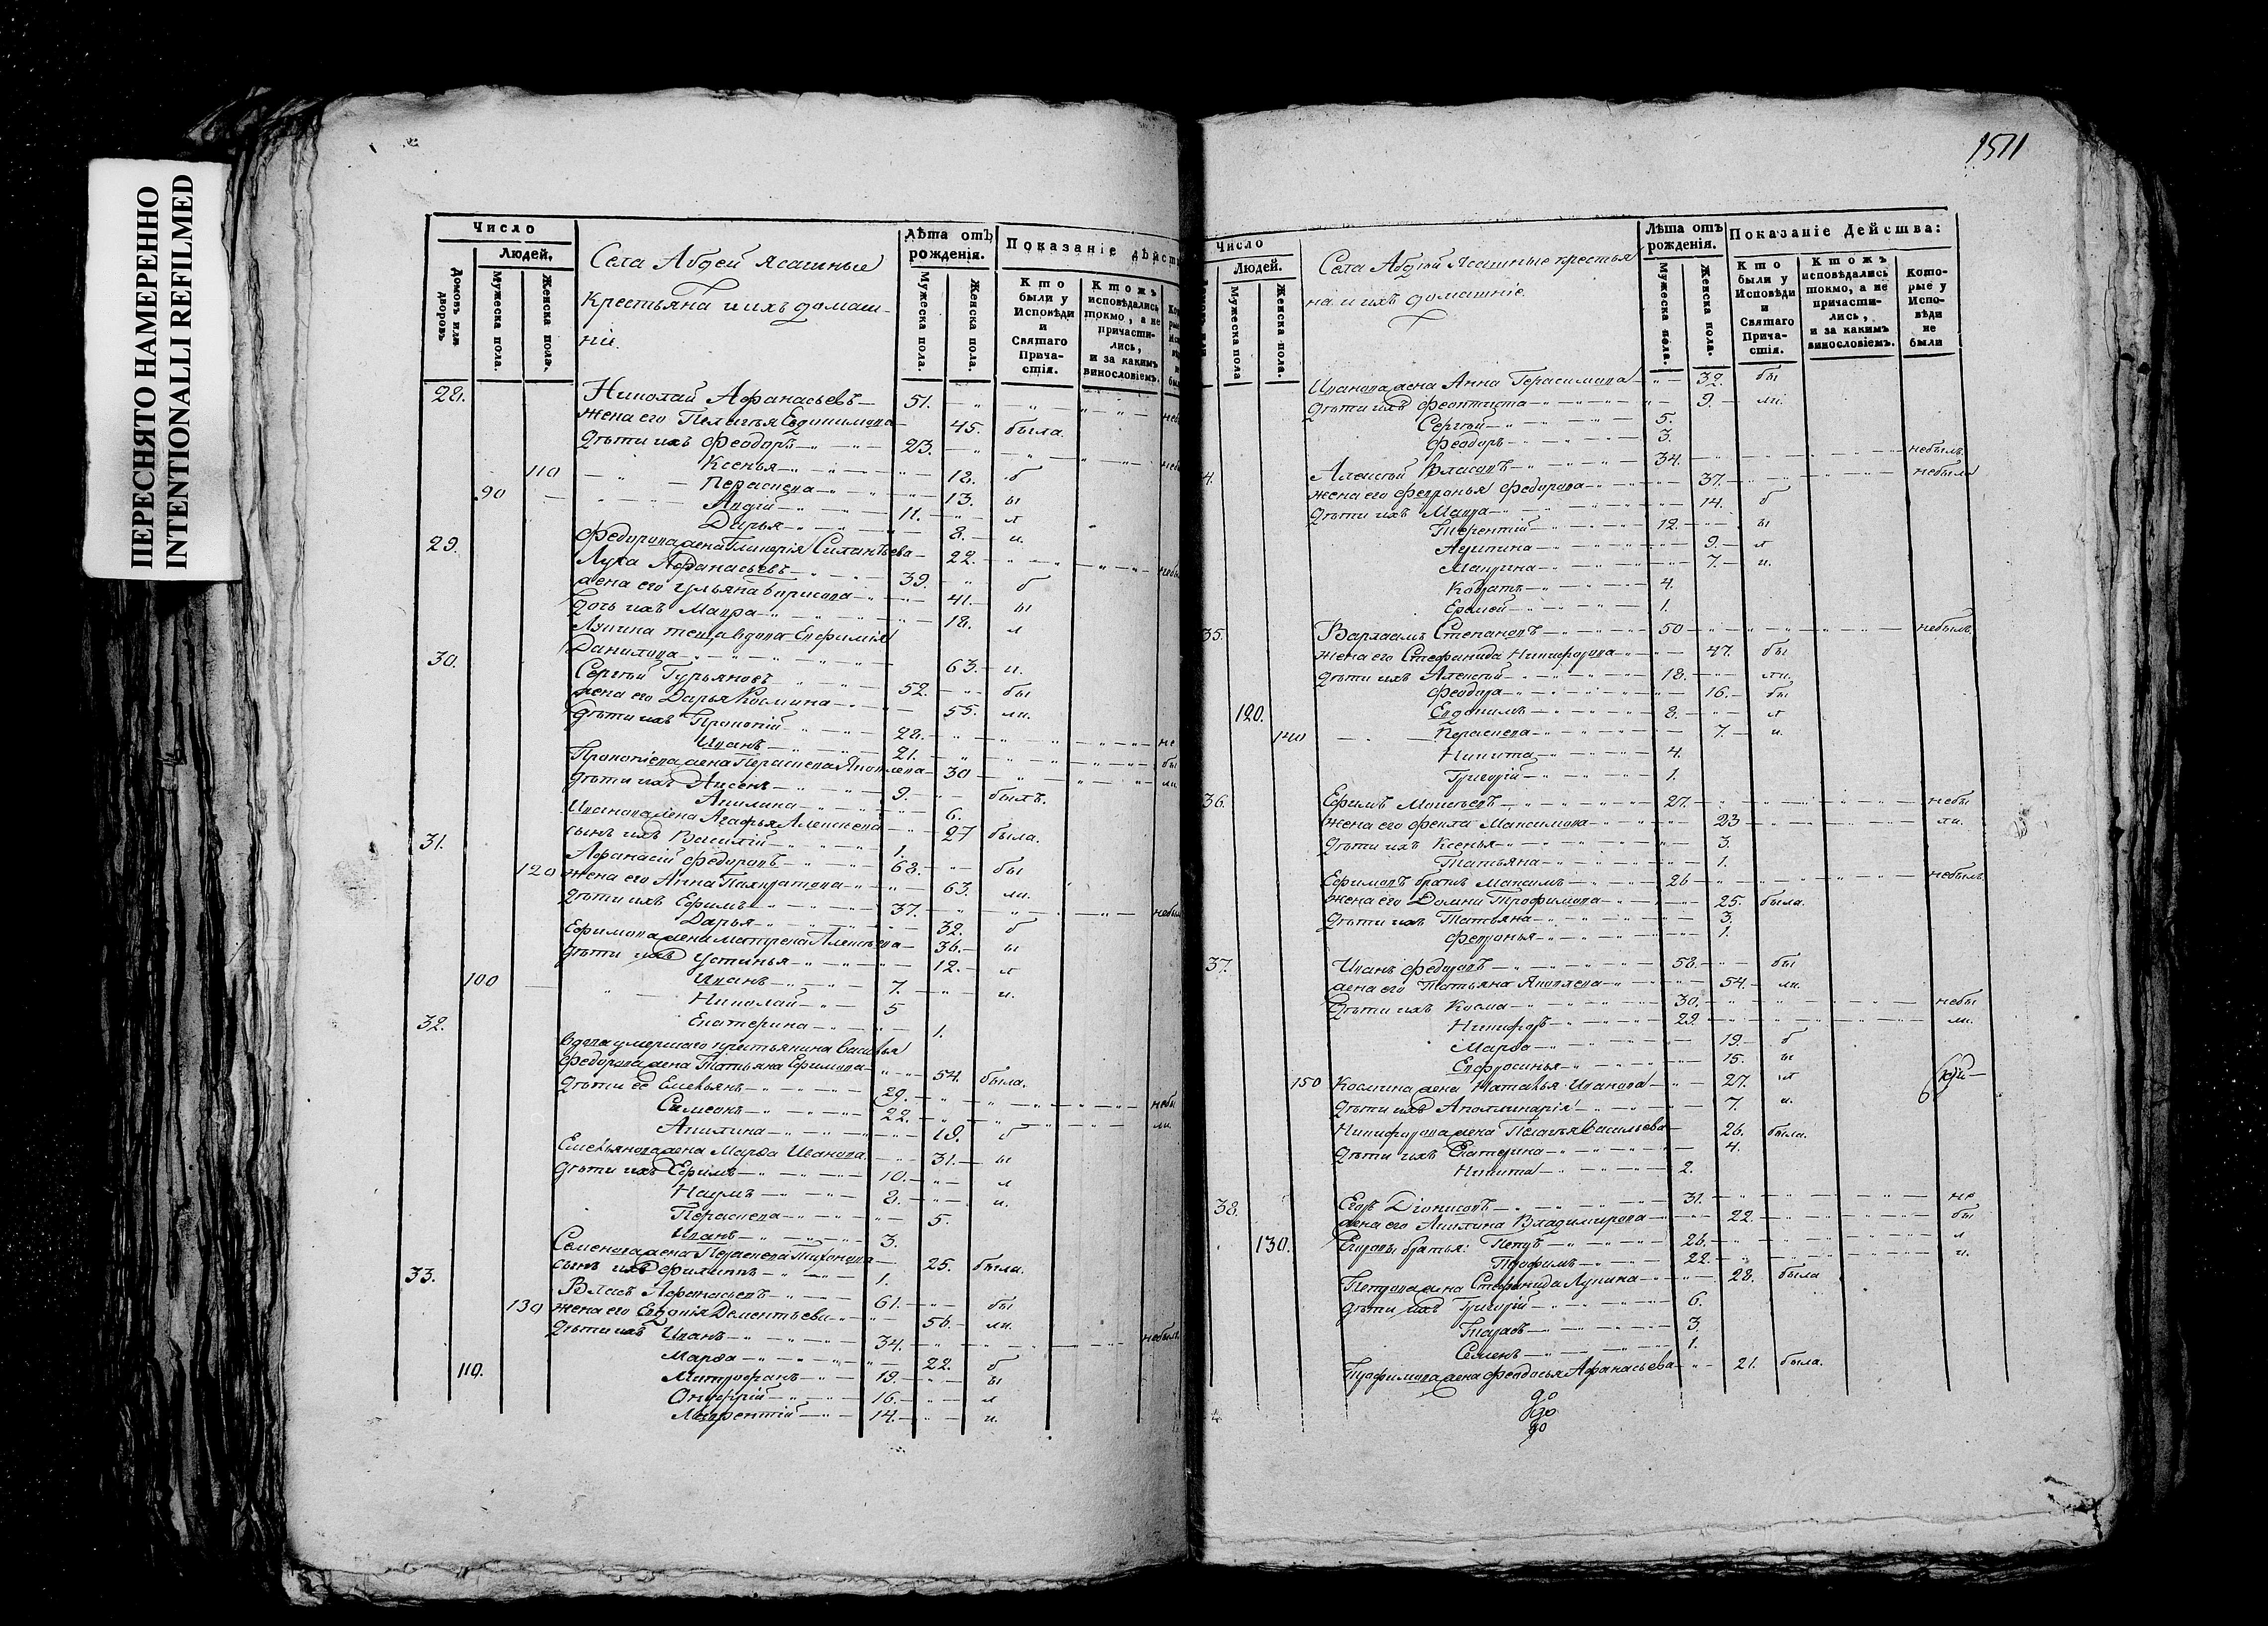 ПЕРЕСНЯТО НАМЕРЕННО
INTENTIONALLI REFILMED
Число
Людей.
Домовъ или дворовъ
Мужеска пола.
Женска пола.
Села Абдей Ясашные
Крестьяна и ихъ домаш-
ніи.
Лѣта отъ рожденія.
Мужеска пола.
Женска пола.
Показаніе дѣйст
Кто были у Исповѣди и Святаго Прича-стія.
Ктожъ исповѣдались токмо, а не причасти-лись, и за какимъ винословіемъ.
28. Николай Афанасьевъ 51.
жена его Пелагѣя Евдокимова 45. была.
дѣти ихъ Феодоръ 23.
110 Ксенья 18. б
Параскева 13. ы
90 Авдій 11. л
Дарья 8. и.
Федорова жена Гликерія Силантьева 22.
29. Лука Афанасьевъ 39. б
жена его Ульяна Борисова 41. ы
дочь ихъ Мавра 18. л
Лукина теща вдова Евфимія
Данилова 63. и.
30. Сергѣй Гурьяновъ 52. бы
жена его Дарья Космина 55. ли.
дѣти ихъ Прокопій 28. не
Иванъ 21. бы
Прокопіева жена Параскева Яковлева 30 ли
дѣти ихъ 9. былъ.
Акилина 6.
Иванова жена Агафья Алексеева 27 была.
сынъ ихъ Василій 1.
31. Афанасій Федоровъ 68. бы
120 жена его Анна Панкратова 63. ли.
дѣти ихъ Ефимъ 37. небыл
Дарья 32. б
Ефимова жена Матрена Алексѣева 36. ы
дѣти ихъ Устинья 12. л
100 Иванъ 7. и.
Николай 5
Екатерина 1.
32. вдова умершаго крестьянина Василья
Федорова жена Татьяна Ефимова 54. была.
дѣти её Емельянъ 29. небы
Симеонъ 22. ли.
Акилина 19. б
Емельянова жена Марфа Иванова 31. ы
дѣти ихъ Ефимъ 10. л
Наумъ 8. и.
Параскева 5.
Иванъ 3.
Семенова жена Параскева Тихонова 25. была.
сынъ ихъ Филиппъ 1.
33. Власъ Афанасьевъ 61. бы
130 жена его Евдокія Дементьева 56. ли.
дѣти ихъ Иванъ 34. небылъ
Марфа 22. б
110. Митрофанъ 19. ы
Онуфрій 16. л
Лаврентій 14. и.
1511
Число
Людей.
Мужеска пола
Женска пола.
Села Абдей Ясашные крестья
на и ихъ домашніе.
Лѣта отъ рожденія.
Мужеска пола.
Женска пола.
Показаніе Действа:
Кто были у Исповѣди и Святаго Прича-стія.
Ктожъ исповѣдались токмо, а не причасти-лись, и за какимъ винословіемъ.
Кото-рые у Испо-вѣди не были
Иванова жена Анна Герасимова 32. бы
дѣти ихъ Феоктиста 9. ли.
Сергѣй 5.
Феодоръ 3.
4. Алексѣй Власовъ 34. небылъ.
жена его Февронья Федорова 37. небыла
дѣти ихъ Мавра 14. б
Терентій 12. ы
Акулина 9. л
7. и.
Кодратъ 4.
Еремей 1.
35. Варлаамъ Степановъ 50 небылъ.
жена его Стефанида Никифорова 47. бы
дѣти ихъ Алексѣй 18. ли.
Феодора 16. бы
120. Евдокимъ 8. л
140 Параскева 7. и.
Никита 4.
Григорій 1.
36. Ефимъ Моисеевъ 27. небы
жена его Фекла Максимова 23 ли.
дѣти ихъ Ксенья 3.
Татьяна 1.
Ефимовъ братъ Максимъ 26 небылъ
жена его Домна Трофимова 25. была.
дѣти ихъ Татьяна 3.
Февронья 1.
37. Иванъ Федоровъ 58. бы
жена его Татьяна Яковлева 54. ли.
дѣти ихъ Косма 30. небы
Никифоръ 22 ли.
Марфа 19. б
Евфросинья 15. ы
150 Космина жена Наталья Иванова 27. л
дѣти ихъ Аполлинарія 7. и.
Никифорова жена Пелагѣя Васильева 26. была.
дѣти ихъ Екатерина 4.
Никита 2.
38. Егоръ Діонисовъ 31. не
жена его Акилина Владимирова 22. бы
130. Егоровы братья: Петръ 26. л
Трофимъ 22. и.
Петрова жена Стефанида Лукина 28. была
дѣти ихъ Григорій 6.
Тарасъ 3.
Семенъ 1.
Трофимова жена Феодосья Афанасьева 21. была.